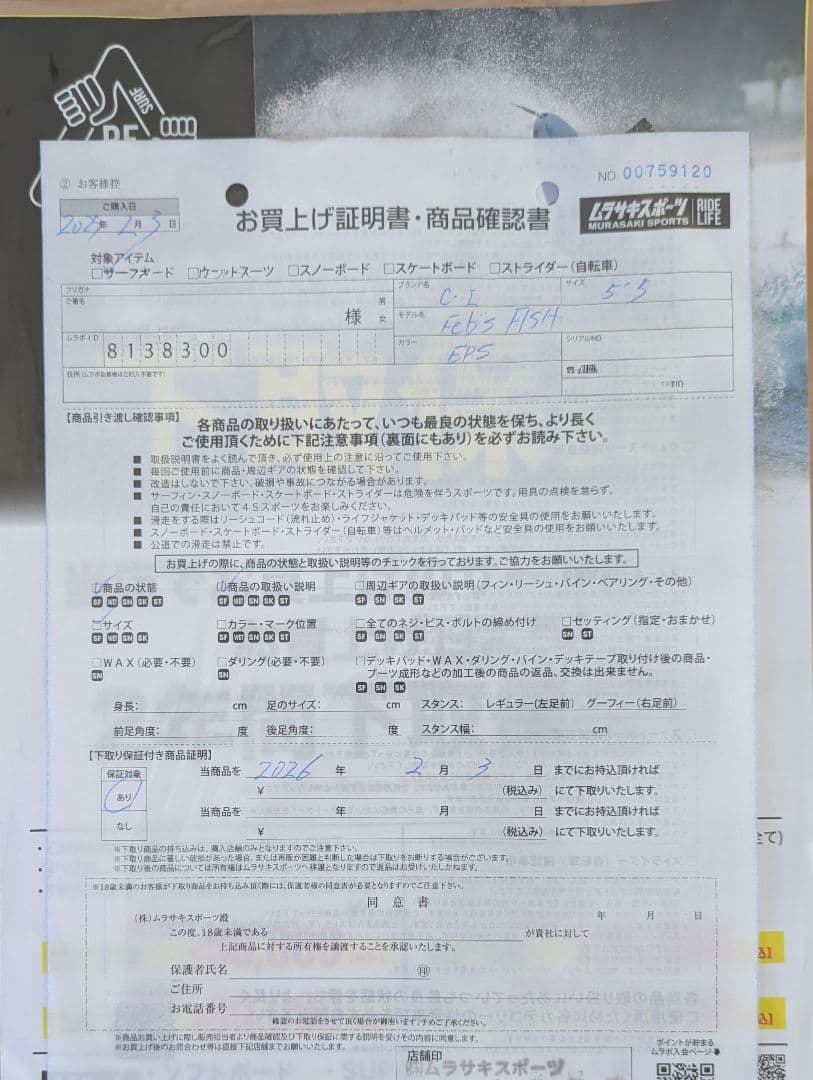 SURF
② お客様控
NO. 00759120
ご購入日
年 2月 3日
お買上げ証明書・商品確認書
ムラサキスポーツ
MURASAKI SPORTS
RIDE LIFE
対象アイテム
□サーフボード □ウェットスーツ □スノーボード □スケートボード □ストライダー（自転車）
フリガナ
ご署名
様
男
女
ブランド名 C.I
サイズ 5'5
モデル名 Feb's FISH
カラー EPS
シリアルNO.
ムラボID 8138300
住所（ムラボ会員様はご記入不要です）
【商品引き渡し確認事項】
各商品の取り扱いにあたって、いつも最良の状態を保ち、より長く
ご使用頂くために下記注意事項（裏面にもあり）を必ずお読み下さい。
■ 取扱説明書をよく読んで頂き、必ず使用上の注意に沿ってご使用下さい。
■ 毎回ご使用前に商品・周辺ギアの状態を確認して下さい。
■ 改造はしないで下さい。破損や事故につながる場合があります。
■ サーフィン・スノーボード・スケートボード・ストライダーは危険を伴うスポーツです。用具の点検を怠らず、
自己の責任において4Sスポーツをお楽しみください。
■ 滑走をする際はリーシュコード（流れ止め）・ライフジャケット・デッキパッド等の安全具の使用をお願いいたします。
■ スノーボード・スケートボード・ストライダー（自転車）等はヘルメット・パッドなど安全具の使用をお願いいたします。
■ 公道での滑走は禁止です。
お買上げの際に、商品の状態と取扱い説明等のチェックを行っております。ご協力をお願いいたします。
□商品の状態 □商品の取扱い説明 □周辺ギアの取扱い説明（フィン・リーシュ・バイン・ベアリング・その他）
SF WE SN SK ST SF WE SN SK ST SF SN SK ST
□サイズ □カラー・マーク位置 □全てのネジ・ビス・ボルトの締め付け □セッティング（指定・おまかせ）
SF WE SN SK SF WE SN SK ST SF SN SK ST SN ST
□WAX（必要・不要） □ダリング（必要・不要） □デッキパッド・WAX・ダリング・バイン・デッキテープ取り付け後の商品・
ブーツ成形などの加工後の商品の返品、交換は出来ません。
SN SN SF SN SK
身長： cm 足のサイズ： cm スタンス： レギュラー（左足前） グーフィー（右足前）
前足角度： 度 後足角度： 度 スタンス幅： cm
【下取り保証付き商品証明】
保証対象
あり
なし
当商品を 2026 年 2 月 3 日 までにお持込頂ければ
¥ （税込み） にて下取りいたします。
当商品を 年 月 日 までにお持込頂ければ
¥ （税込み） にて下取りいたします。
※下取り商品の持ち込みは、購入店舗のみとなりますのでご注意下さい。
※下取り商品に著しい破損があった場合、または再販が困難と判断した場合は下取りをお断りする場合がございます。
※下取り後の商品については所有権はムラサキスポーツへ移譲となりますので返品はお受けいたしかねます。
※18歳未満のお客様が下取り商品をお持ち込み頂く際には、保護者様の同意書が必要となりますのでご注意下さい。
同 意 書
（株）ムラサキスポーツ殿
年 月 日
この度、18歳未満である が貴社に対して
上記商品に対する所有権を譲渡することを承認いたします。
保護者氏名 ㊞
ご住所
お電話番号
確認のお電話をさせて頂く場合が御座います。予めご了承ください。
※商品お買上げに際し販売担当者より商品確認及び下取り保証に関する説明を受けその内容に同意します。
※お買上げ後のお問合わせ等は直接下記店舗までお願いいたします。
店舗印
㈱ムラサキスポーツ
ポイントが貯まる
ムラボ入会ページ